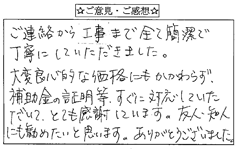 ☆ご意見・ご感想☆
ご連絡から工事まで全て簡潔で
丁寧にしていただきました。
大変良心的な価格にもかかわらず、
補助金の証明等、すぐに対応していた
だいて、とても感謝しています。友人・知人
にも勧めたいと思います。ありがとうございました。